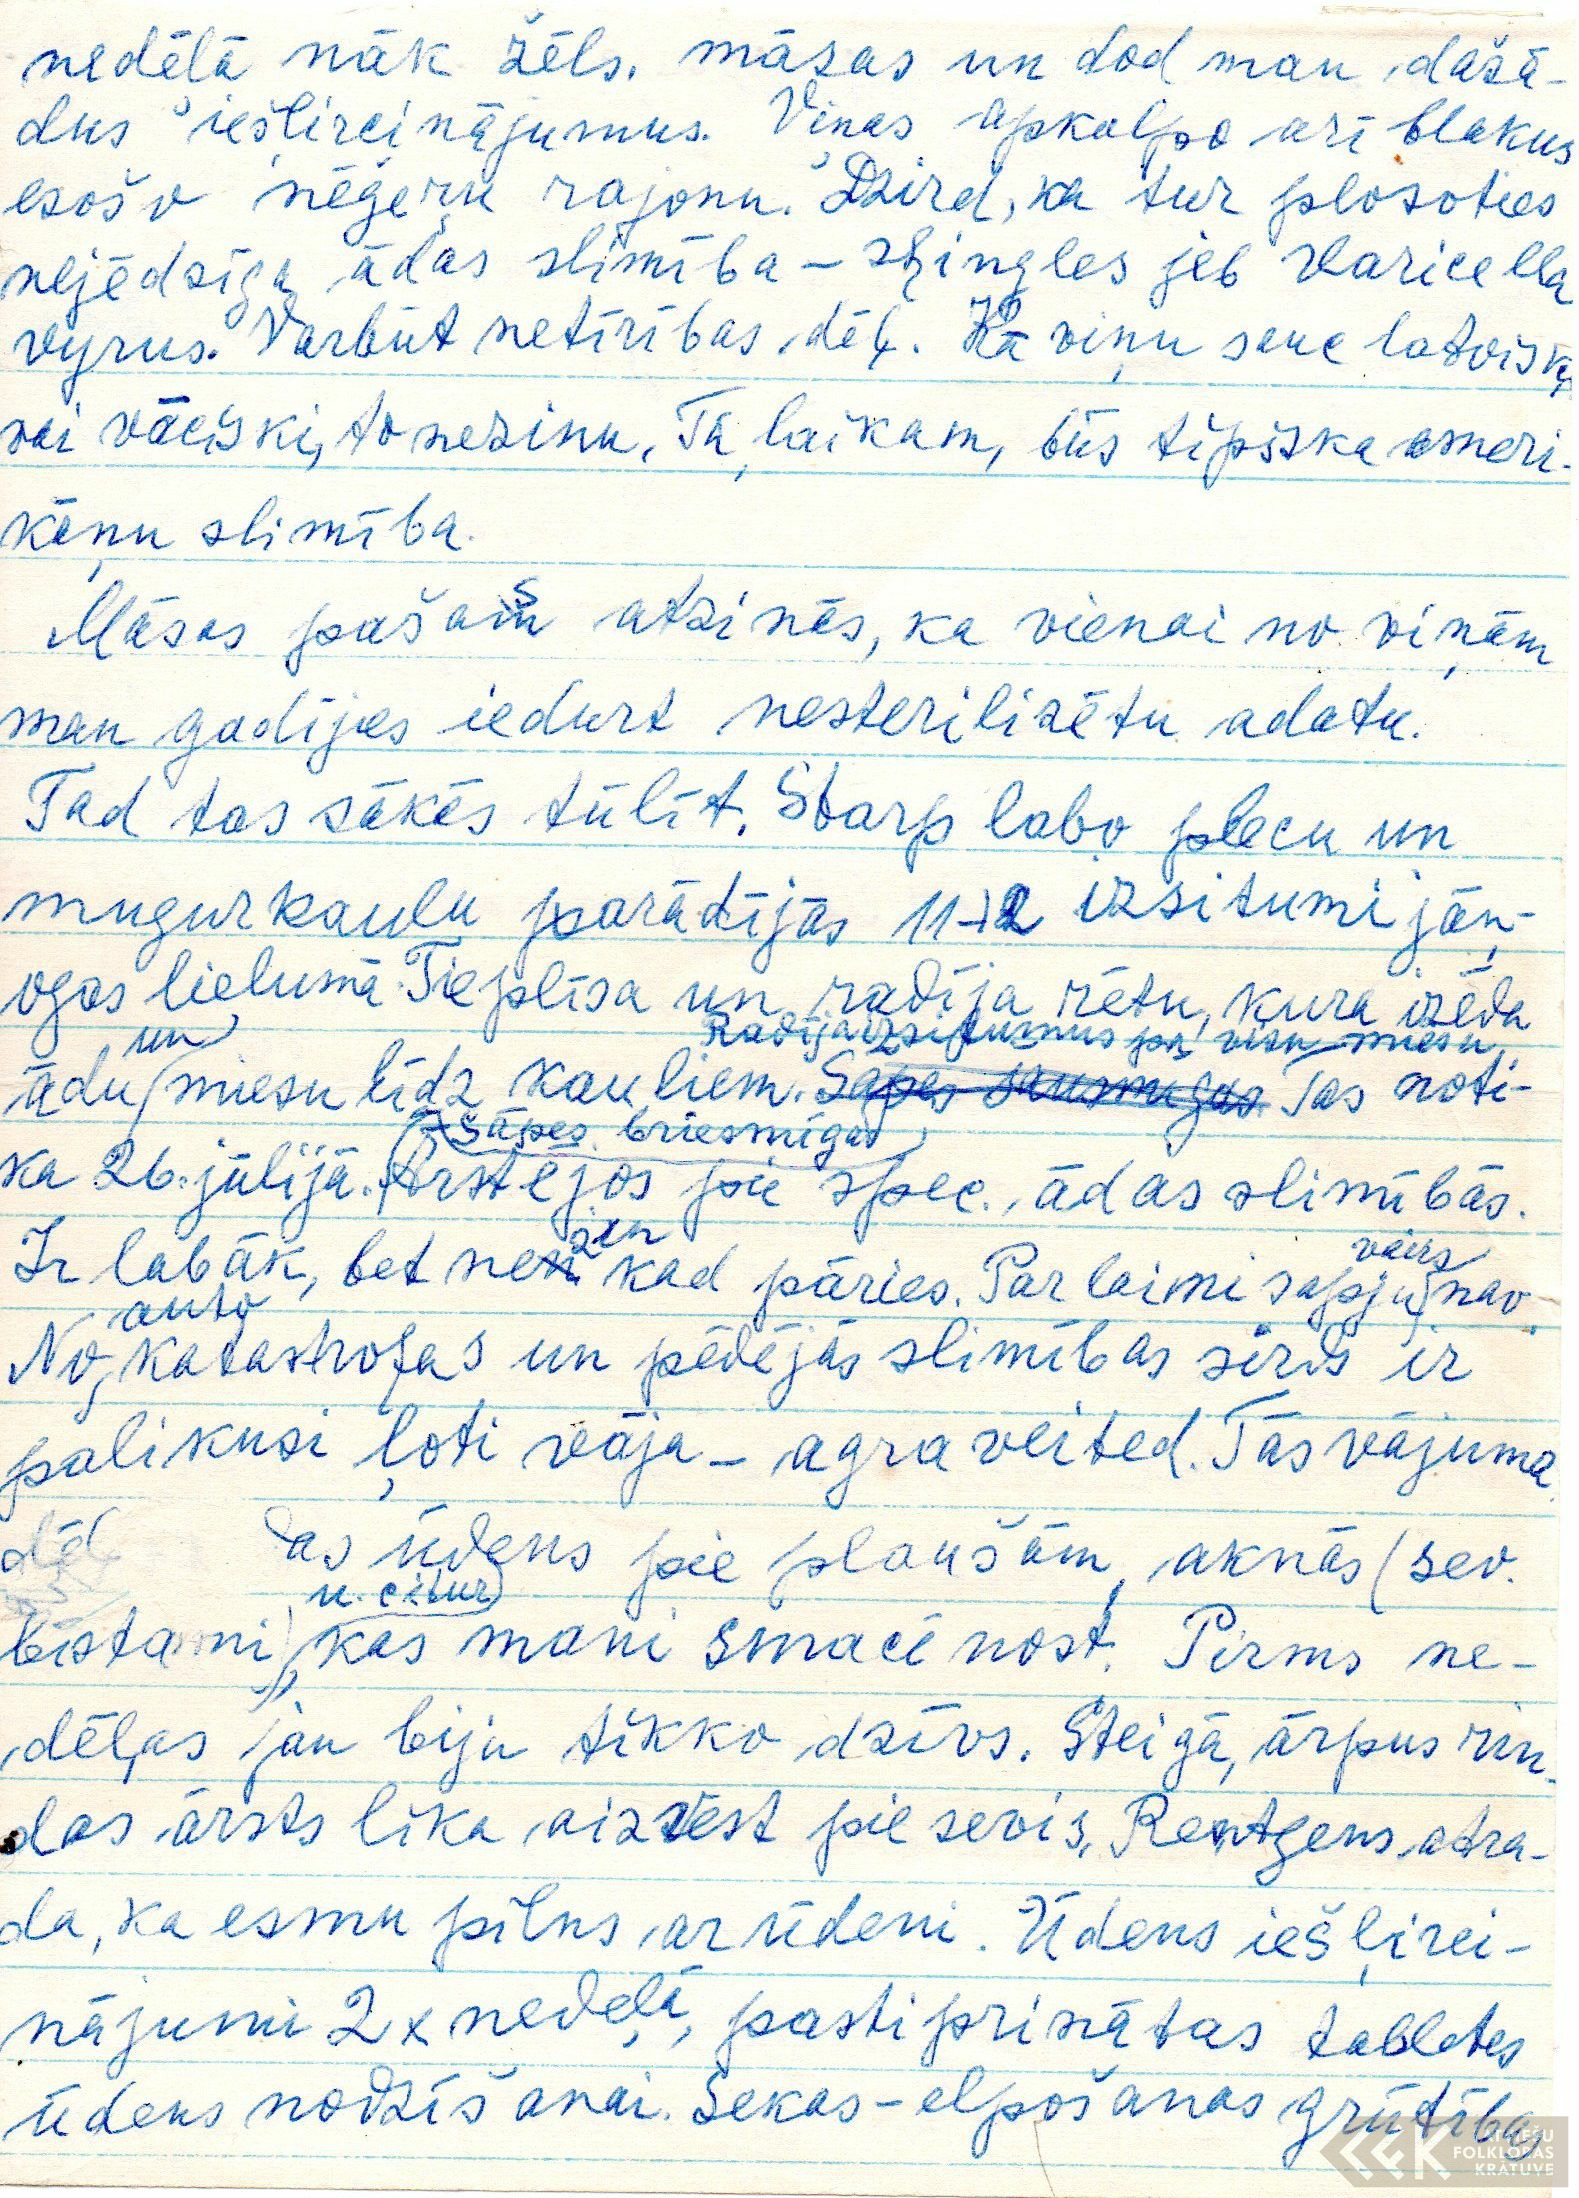 nedēļā nāk žēls. māsas un dod man dažā-
dus iešļircinājumus. Viņas apkalpo arī blakus
esošo nēģeŗu rajonu. Dzird, ka tur plosoties
nejēdzīga ādas slimība – shingles jeb Varicella
vyrus. Varbūt netīrības dēļ. Kā viņu sauc latviski
vai vāciski, to nezinu. Tā, laikam, būs tipiska ameri-
kāņu slimība.
Māsas pašas atzinās, ka vienai no viņām
man gadījies iedurt nesterilizētu adatu.
Tad tas sākās tūlīt. Starp labo plecu un
mugurkaulu parādījās 11-12 izsitumi jāņ-
ogas lielumā. Tie plīsa un radīja rētu, kura izēda
un
Radīja izsitumus pa visu miesu.
ādu miesu līdz kauliem. Sāpes šausmīgas. Tas noti-
Sāpes briesmīgas
ka 26. jūlijā. Ārstējos pie spec. ādas slimībās.
zin
vairs
Ir labāk, bet ne kad pāries. Par laimi sāpju nav.
auto
No katastrofas un pēdējās slimības sirds ir
palikusi ļoti vāja – agraveited. Tās vājuma
dēļ as ūdens pie plaušām, aknās (sev.
u. citur
bīstami), kas mani smacē nost. Pirms ne-
dēļas jau biju tikko dzīvs. Steigā, ārpus rin-
das ārsts lika aizvest pie sevis. Rentgens atra-
da, ka esmu pilns ar ūdeni. Ūdens iešļirci-
nājumi 2 x nedēļā, pastiprinātas tabletes
ūdens nodzīšanai. Sekas – elpošanas grūtība,
LATVIEŠU
FOLKLORAS
KRĀTUVE